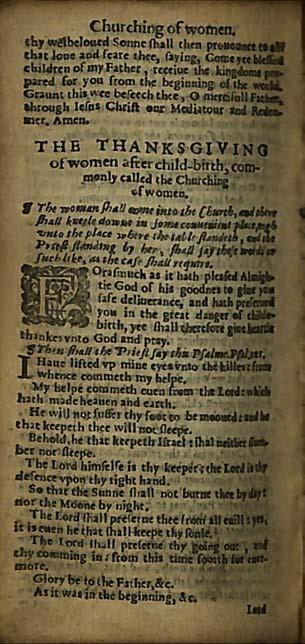 Churching of women.
thy welbeloued Sonne shall then pronounce to all
that loue and feare thee, saying, Come yee blessed
children of my Father, receiue the kingdome pre-
pared for you from the beginning of the world.
Graunt this wee beseech thee, O mercifull Father,
through Iesus Christ our Mediatour and Redee-
mer. Amen.
THE THANKSGIVING
of women after child-birth, com-
monly called the Churching
of women.
¶ The woman shall come into the Church, and there
shall kneele downe in some conuenient place, nigh
vnto the place where the table standeth, and the
Priest standing by her, shall say these words or
such like, as the case shall require.
FOrasmuch as it hath pleased Almigh-
tie God of his goodnes to giue you
safe deliuerance, and hath preserued
you in the great danger of childe-
birth, yee shall therefore giue heartie
thankes vnto God and pray.
¶ Then shall the Priest say this Psalme. Psal. 121.
I Haue lifted vp mine eyes vnto the hilles: from
whence commeth my helpe.
My helpe commeth euen from the Lord: which
hath made heauen and earth.
He will not suffer thy foot to be mooued: and he
that keepeth thee will not sleepe.
Behold, he that keepeth Israel: shal neither slum-
ber nor sleepe.
The Lord himselfe is thy keeper: the Lord is thy
defence vpon thy right hand.
So that the Sunne shall not burne thee by day:
nor the Moone by night.
The Lord shall preserue thee from all euill: yea,
it is euen he that shall keepe thy soule.
The Lord shall preserue thy going out, and
thy comming in: from this time foorth for euer-
more.
Glory be to the Father, &c.
As it was in the beginning, &c.
Lord